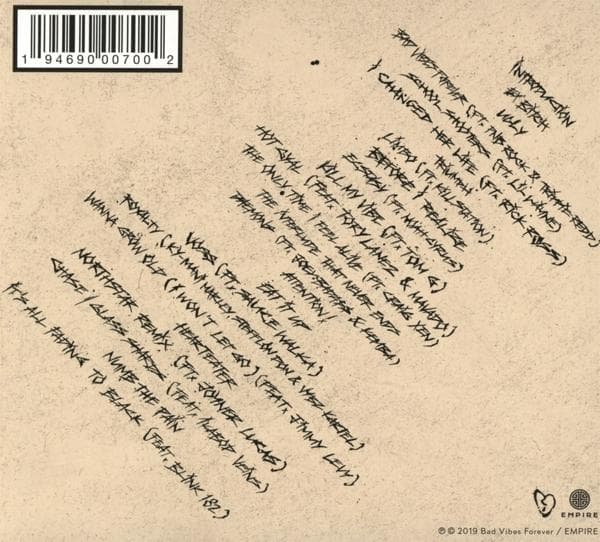 1 94690 00700 2
INTRODUCTION
EX BITCH
UGLY
BAD VIBES FOREVER (FT. PNB ROCK & TRIPPIE REDD)
SCHOOL SHOOTERS (FT. LIL WAYNE)
I CHANGED HER LIFE (FT. RICK ROSS)
TRIUMPH
LIMBO (FT. KILLSTATION)
BEFORE I REALIZE
ECSTASY (FT. NOAH CYRUS)
KILL MY VIBE (FT. TOM G)
HOT GYAL (FEAT. TORY LANEZ & MAVADO)
THE ONLY TIME I FEEL ALIVE
THE INTERLUDE THAT NEVER ENDS
ATTENTION!
EAT IT UP
VOSS (FT. SAUCE WALKA)
ROYALTY (KY-MANI MARLEY, STEFFLON DON & VYBZ KARTEL)
WANNA GROW OLD (I WON'T LET GO) (FEAT. JIMMY LEVY)
HEARTEATER
NORTHSTAR REMIX (FT. JOYNER LUCAS)
CHASE / GLASS SHARDS
NUMB THE PAIN
IT'S ALL FADING TO BLACK (FEAT. BLINK 182)
EMPIRE
℗ © 2019 Bad Vibes Forever / EMPIRE